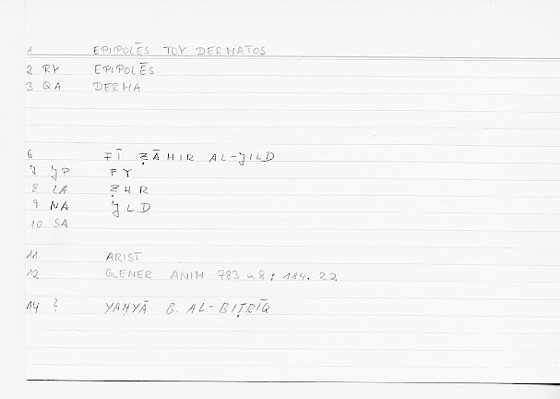 1 EPIPOLĒS TOY DERMATOS
2 RY EPIPOLĒS
3 QA DERMA
6 FĪ ẒĀHIR AL-JILD
7 JP FY
8 LA ẒHR
9 NA JLD
10 SA
11 ARIST
12 GENER ANIM 783 a 8; 184. 22
14 ? YAḤYĀ B. AL-BIṬRĪQ